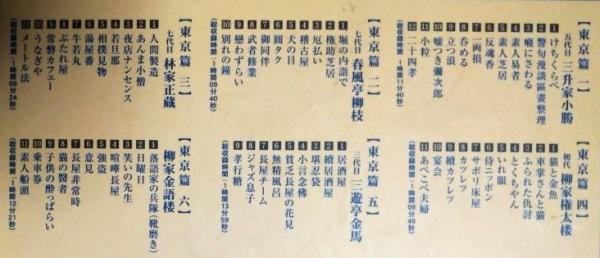 【東京篇 一】
五代目 三升家小勝
1 けちくらべ
2 警句漫談區畫整理
3 癪にさわる
4 素人易者
5 素人芝居
6 反魂香
7 両損
8 呑める
9 立つ浪
10 嘘つき彌次郎
11 小粒
12 二十四孝
(総収録時間:1時間11分40秒)
【東京篇 二】
七代目 春風亭柳枝
1 堀の内詣で
2 権助芝居
3 厄払い
4 稽古屋
5 犬の目
6 圓タク
7 御同伴
8 武者修業
9 戀わずらい
10 別れの鐘
(総収録時間:1時間09分40秒)
【東京篇 三】
七代目 林家正蔵
1 人間製造
2 あんま小僧
3 夜店ナンセンス
4 若旦那
5 相撲見物
6 湯屋番
7 牛若丸
8 ぶたれ屋
9 常磐カフェー
10 うなぎや
11 メートル法
(総収録時間:1時間09分24秒)
【東京篇 四】
初代 柳家権太楼
1 猫と金魚
2 車掌さんと猫
3 ふられた仇討
4 とくちゃん
5 いれ眼
6 侍ニッポン
7 サボリ床屋
8 カツレツ
9 續カツレツ
10 宴会
11 あべこべ夫婦
(総収録時間:1時間09分49秒)
【東京篇 五】
三代目 三遊亭金馬
1 居酒屋
2 續居酒屋
3 堪忍袋
4 小言念佛
5 貧乏長屋の花見
6 無精風呂
7 長屋チーム
8 ジャズ息子
9 孝行糖
(総収録時間:1時間13分59秒)
【東京篇 六】
柳家金語楼
1 落語家の兵隊(靴磨き)
2 日曜日
3 笑いの先生
4 喧嘩長屋
5 強盗
6 意見
7 長屋非常時
8 猫の醫者
9 子供の酔っぱらい
10 乗車券
11 素人船頭
(総収録時間:1時間12分21秒)